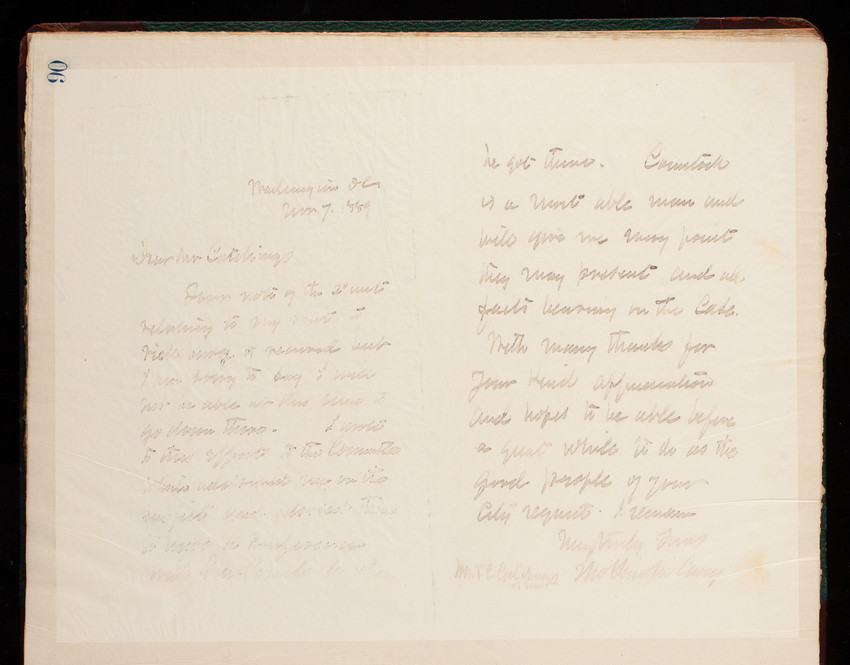 90
Washington DC
Nov. 7. 1889
Dear Mr Catchings
Your note of the 2d inst
relating to my visit to
Vicksburg is received but
I am sorry to say I will
not be able at this time to
go down there. I wrote
to this effect to the Committee
which addressed me on the
subject and advised them
to have a conference
with
he got there. Comstock
is a most able man and
will give me every point
they may present and all
facts bearing on the Case.
With many thanks for
Your Kind appreciation
and hopes to be able before
a great while to do as the
good people of your
City request. I remain
Very truly Yours
Hon T C Catchings
Thos Lincoln Casey